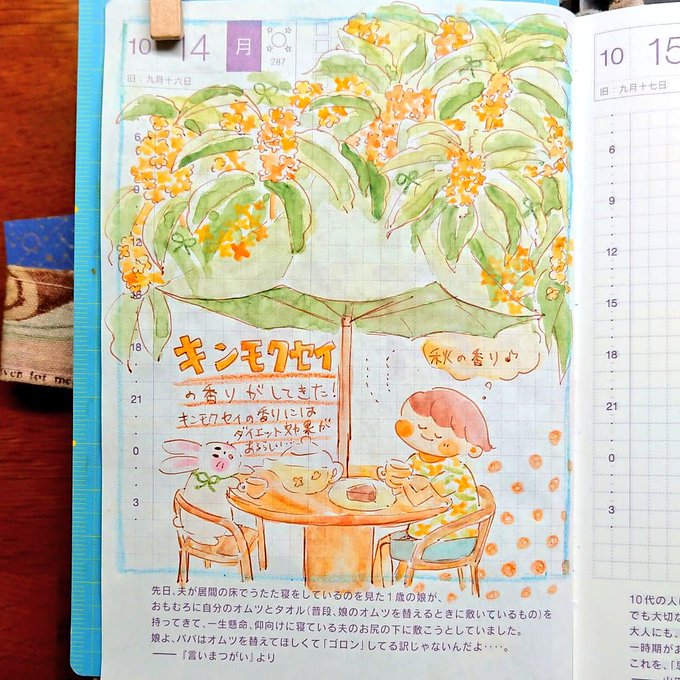 10 14 月
287
旧：九月十六日
6
9
12
18
21
0
3
キンモクセイ
の香りがしてきた!
キンモクセイの香りには
ダイエット効果が
あるらしい…
秋の香り♪
先日、夫が居間の床でうたた寝をしているのを見た1歳の娘が、
おもむろに自分のオムツとタオル(普段、娘のオムツを替えるときに敷いているもの)を
持ってきて、一生懸命、仰向けに寝ている夫のお尻の下に敷こうとしていました。
娘よ、パパはオムツを替えてほしくて「ゴロン」してる訳じゃないんだよ‥‥。
――『言いまつがい』より
10 15
旧：九月十七日
6
9
12
15
18
21
0
3
10代の人に
でも大切な
大人にも、
一時期があ
これを、「思